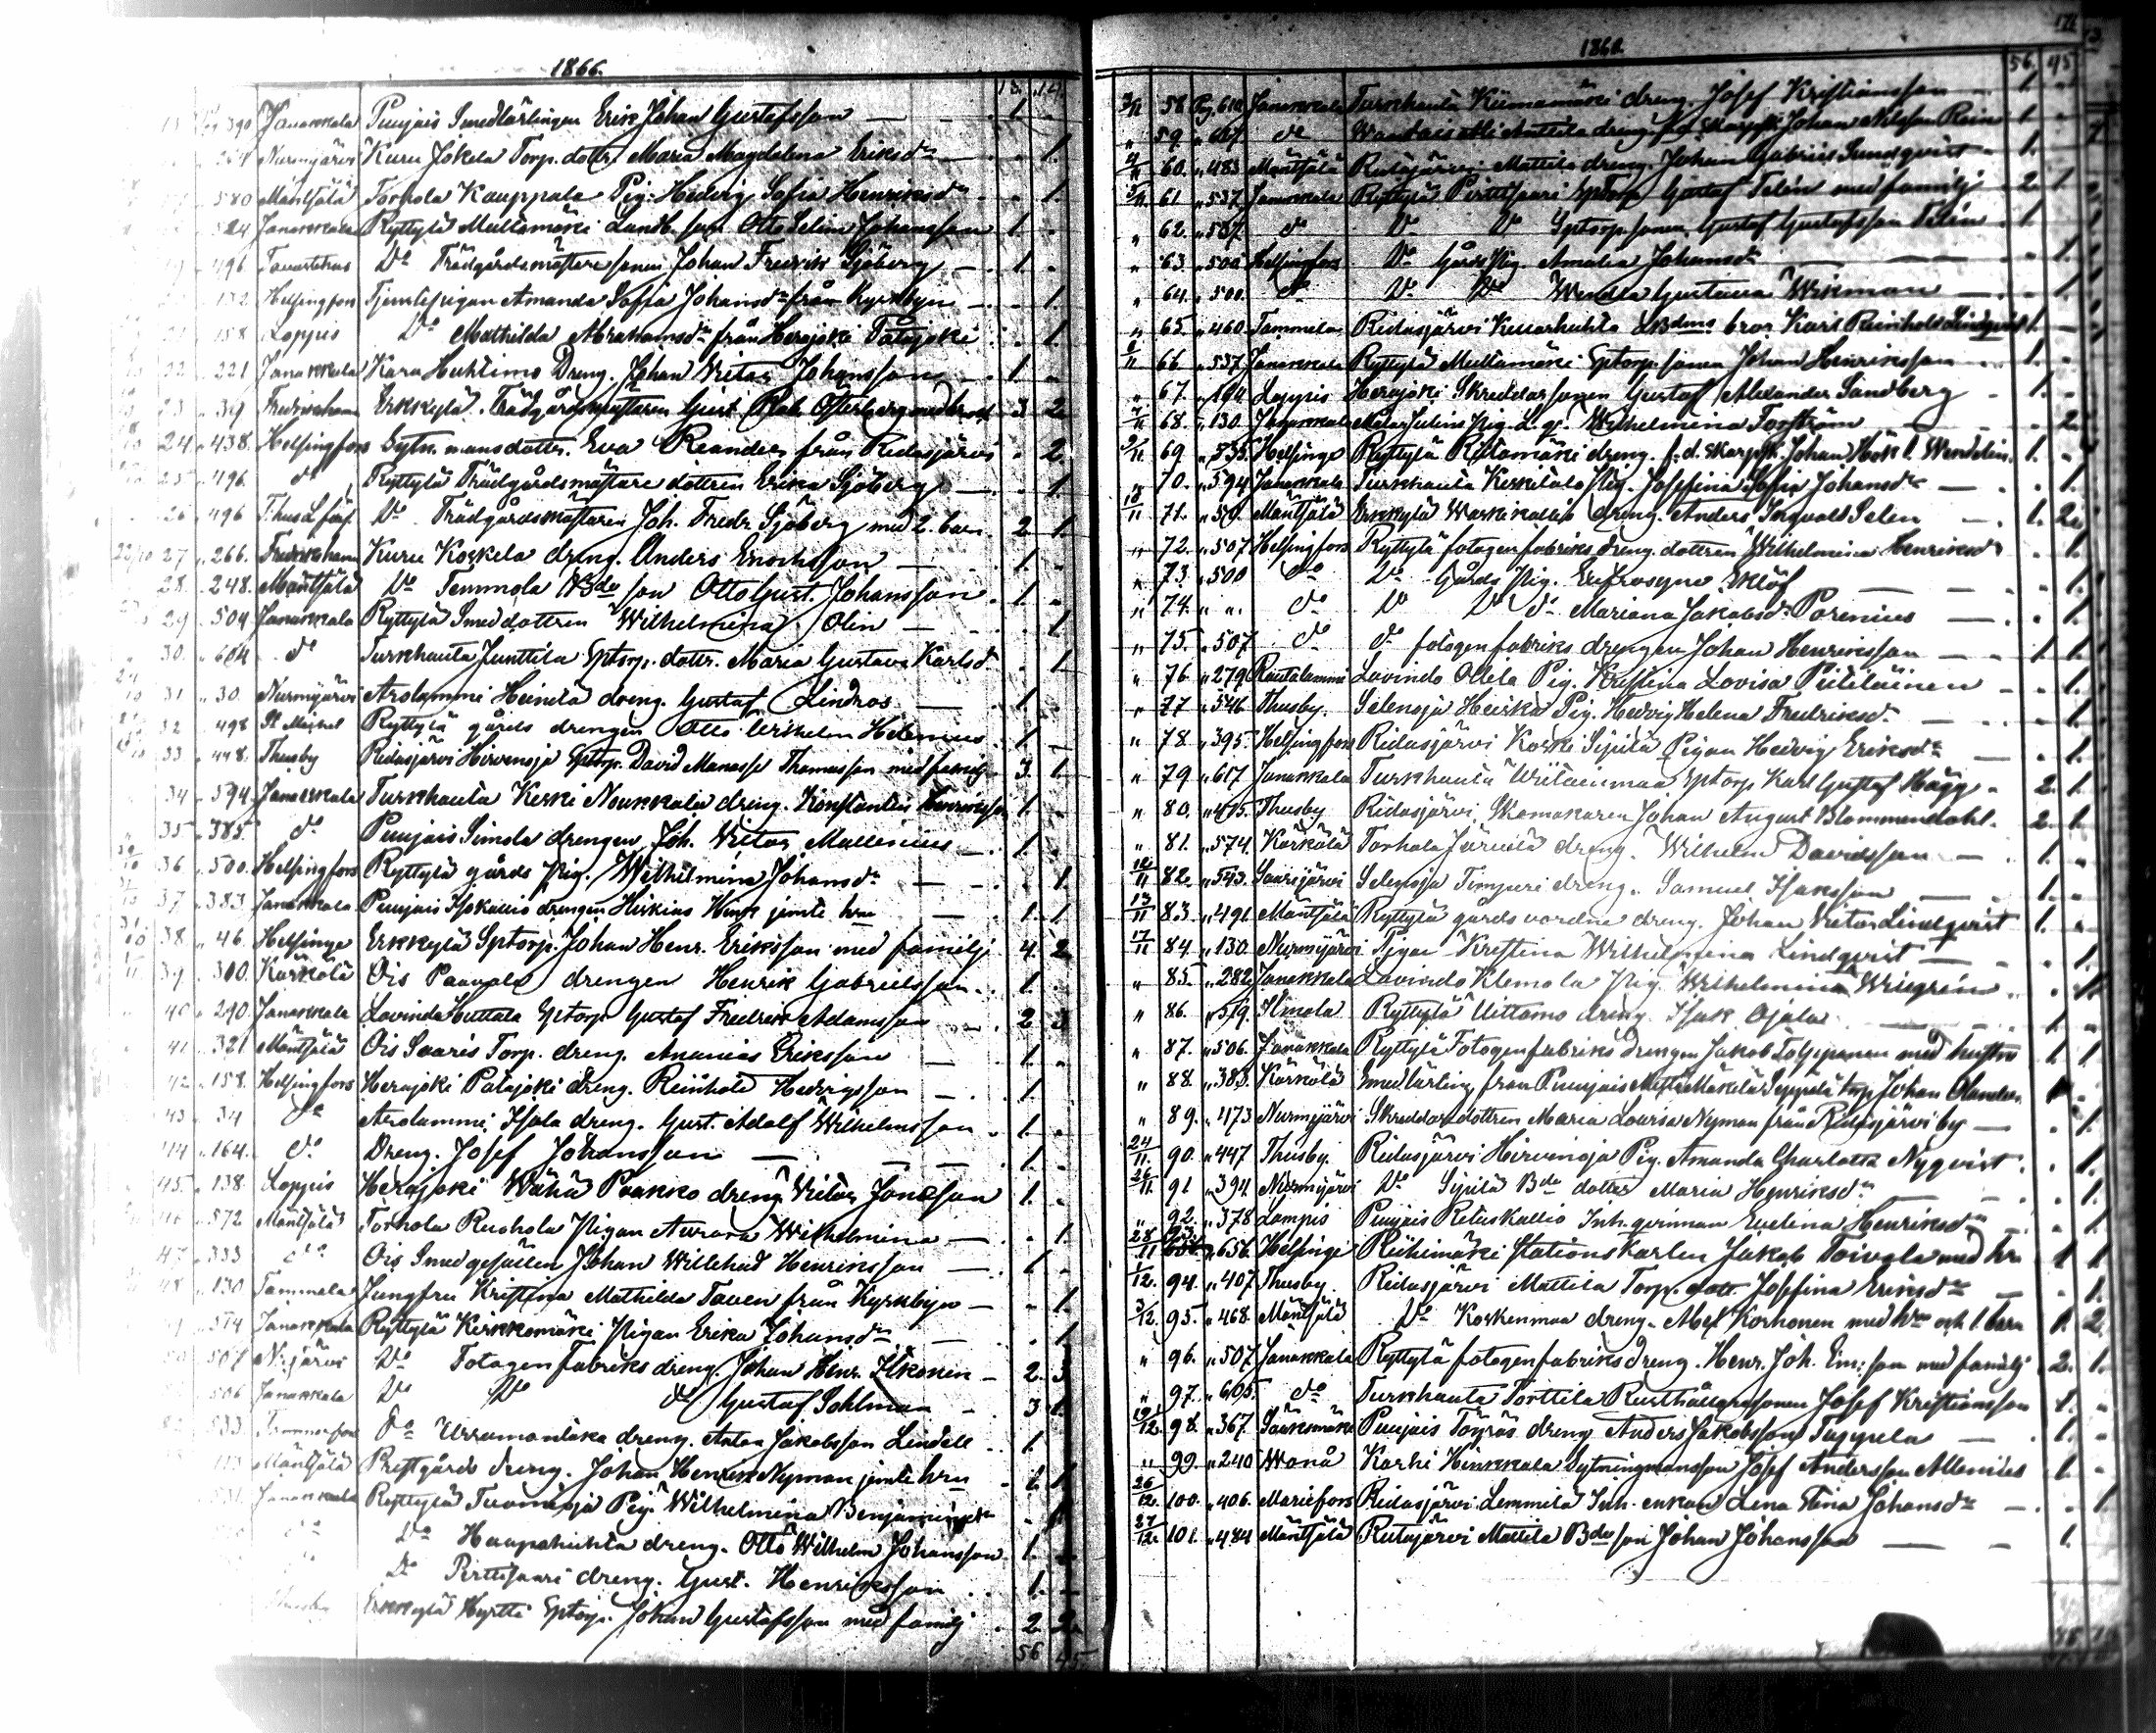 1866.
13. 14.
390 Janakkala Puujais Smedlärlingen Erik Johan Gustafsson 1.
264 Nurmijärvi Kuru Jokela Torp. dottr. Maria Magdalena Eriksdr 1.
580 Mäntsälä Torhola Kauppala Pig. Hedvig Sofia Henriksdr 1.
524 Janakkala Ryttylä Multamäki Landb. son Otto Selim Johansson 1
496 Tavastehus Do Trädgårdsmästare sonen Johan Fredrik Sjöberg 1.
132 Helsingfors Tjenstepigan Amanda Sofia Johansdr från Kyrkbyn 1.
158 Loppis Do Mathilda Abrahamsdr från Herajoki Patajoki 1.
22 221 Janakkala Kara Huhtimo Dreng. Johan Victor Johansson 1.
23 39 Fredrikshamn Erkkylä Trädgårdsmästaren Gust. Österberg med hrad 3 2
24 438. Helsingfors Sytn. mansdottr. Eva Reander från Ridasjärvi 2.
25 496. do Ryttylä Trädgårdsmästare dottren Erika Sjöberg 1.
26 496 Do Trädgårdsmästaren Joh. Fredr. Sjöberg med 2. barn 2 1.
27 266. Fredrikshamn Kuru Koskela dreng. Anders Enochsson 1.
28. 248. Mäntsälä Do Temmola Bde son Otto Gust. Johansson 1.
29 504 Janakkala Ryttylä Smeddottren Wilhelmina Olin 1.
30. 604 do Turkhauta Junttila Sptorp. dottr. Maria Gustava Karlsd. 1.
31 30. Nurmijärvi Arolammi Heinilä dreng. Gustaf Lindros 1.
32 498 St Michel Ryttylä gårds drengen Otto Wilhelm Helenius 1.
33 448. Thusby Ridasjärvi Hirvenoja Sptorp. David Manasse Thomasson med familj 3. 1.
34 594 Janakkala Turkhauta Keski Noukkala dreng. Konstantin Henriksson 1.
35 385. do Puujais Simola drengen Joh. Victor Mallenius 1.
36 500. Helsingfors Ryttylä gårds Pig. Wilhelmina Johansdr 1.
37 383 Janakkala Puujais Isokallio drengen Hiskias Henr. jemte hru 1. 1
38. 46. Helsinge Erkkylä Sptorp. Johan Henr. Eriksson med familj 4. 2
39 300. Kärkölä Ois Paavola drengen Henrik Gabrielsson 1.
40 290. Janakkala Lovinda Huttala Sptorp. Gustaf Fredrik Adamsson 2 3
41 321 Mäntsälä Ois Saaris Torp. dreng. Ananias Eriksson 1.
42. 158. Helsingfors Herajoki Patajoki dreng. Reinhold Hedvigsson 1
43 34 do Arolammi Isola dreng. Gust. Adolf Wilhelmsson 1.
44 164. do Dreng. Josef Johansson 1.
45 138. Loppis Herajoki Wähä Paakko dreng. Victor Jonasson 1.
572 Mäntsälä Torhola Ruohola Pigan Aurora Wilhelmina 1.
47. 333 do Ois Smedgesällen Johan Willehad Henriksson 1
48 130 Tammela Jungfru Kristina Mathilda Taven från Kyrkbyn 1.
574 Janakkala Ryttylä Kirkkomäki Pigan Erika Johansdr 1
507 N:järvi Do Fotogen fabriks dreng. Johan Henr. Ilkonen 2. 3
506 Janakkala Do Do do Gustaf Sohlman 3 1.
533 do dreng. Anton Jakobsson Lindell 1.
113 Mäntsälä Prestgårds dreng. Johan Henrik Nyman jemte hru 1 1
531. Janakkala Ryttylä Tuomioja Pig. Wilhelmina Benjaminsdr 1
do Do Haapahuhta dreng. Otto Wilhelm Johansson 1.
Do Perttisaari dreng. Gust. Henriksson 1.
Thusby Erkkylä Hyrtti Sptorp. Johan Gustafsson med familj 2 2
56 45
1866.
56. 45
2/11 58 Pag. 610 Janakkala Turkhauta Kiimamäki dreng. Josef Kristiansson 1
59 667 do Johan Nilsson Rein 1
60. 483 Mäntsälä Ridasjärvi Mattila dreng. Johan Gabriels Sundqvist 1.
5/11 61 537 Janakkala Ryttylä Pirttisaari Sptorp Gustaf Telén med familj 2. 1
62. 537. do Do Do Sptorp sonen Gustaf Gustafsson Telén 1
63. 500 Helsingfors Do Gårds Pig. Amalia Johansdr 1.
64. 500. do Do Do Wendla Gustava Wikman 1.
65. 460. Tammela Ridasjärvi Kiuashuhta bror Karl Reinhold Lindqvist 1.
6/11 66. 537 Janakkala Ryttylä Multamäki Sptorp. sonen Johan Henriksson 1.
67. 194 Loppis Herajoki Skreddarsonen Gustaf Alexander Sandberg 1.
7/11 68. 130. Janakkala Wilhelmina Forsström 2.
9/11 69 535. Helsinge Ryttylä Ritamäki dreng. f.d. Skarpsk. Johan Wendelin 1.
70. 594 Janakkala Turkhauta Keskitalo Pig. Josefina Sofia Johansdr 1.
10/11 71. 59. Mäntsälä Erkkylä Warkikallio dreng. Anders Ingvald Selen 1. 2.
72. 507 Helsingfors Ryttylä fotogenfabriks dreng. dottren Wilhelmina Henriksdr 1.
73. 500 do Do Gårds Pig. Eufrosyne Eklöf 1.
74. do Do Do Mariana Jakobsdr Porenius 1.
75. 507. do do fotogenfabriks drengen Johan Henriksson 1
76 279 Rautalammi Lovindo Ollila Pig. Kristina Lovisa Piitiläinen 1.
77 546 Thusby. Selenoja Heiska Pig. Hedvig Helena Fredriksdr 1.
78. 395. Helsingfors Ridasjärvi Koski Sipilä Pigan Hedvig Eriksdr 1.
79 617 Janakkala Turkhauta Wiitaenmaa Sptorp Karl Gustaf Hägg 2. 1.
80. 475. Thusby Ridasjärvi Skomakaren Johan August Blommendahl 2. 1.
81. 574. Kärkölä Torhola Järvelä dreng. Wilhelm Davidsson 1
12/11 82. 543. Saarijärvi Selenoja Timperi dreng. Samuel Isaksson 1.
13/11 83. 491 Mäntsälä Ryttylä gårds dreng. Johan Victor Lindqvist 1.
17/11 84. 130. Nurmijärvi Pigan Kristina Wilhelmina Lindqvist 1.
85. 282 Janakkala Lovindo Klemola Pig. Wilhelmina Wirgrén 1.
86. 519. Ilmola Ryttylä Uittamo dreng. Isak Ojala 1
87. 506. Janakkala Ryttylä Fotogenfabriks drengen Jakob Tolppanen med hustru 1 1
88. 383. Kärkölä Smedlärling från Puujais Johan Olander 1.
89. 473 Nurmijärvi Skreddaredottren Maria Lovisa Nyman från Ridasjärvi by 1.
24/11 90. 447 Thusby. Ridasjärvi Hirvenoja Pig. Amanda Charlotta Nyqvist 1.
26/11 91 394 Nurmijärvi Do Sipilä Bde dotter Maria Henriksdr 1.
92. 378 Lampis Puujais Retuskallio Inh. qvinnan Evelina Henriksdr 1
28/11 656. Helsinge Riihimäki Stationskarlen Jakob Toivola med hru 1 1
1/12. 94. 407 Thusby. Ridasjärvi Mattila Torp. dottr. Josefina Eriksdr 1.
3/12 95. 468. Mäntsälä Do Koskenmaa dreng. Alex Korhonen med hru och 1. barn 1. 2
96. 507 Janakkala Ryttylä fotogenfabriks dreng. Henr. Joh. Em:son med familj 2. 1.
97. 605. do Turkhauta Torttila Rusthållaresonen Josef Kristiansson 1.
10/12 98. 367. Sääksmäki Puujais Töyräs dreng. Anders Jakobsson Tappela 1.
99. 240 Wånå Karhi Hinkkala Sytningmansson Josef Andersson Allenius 1.
26/12 100. 406. Mariefors Ridasjärvi Lemmilä Inh. enkan Lena Stina Johansdr 1
27/12. 101. 484 Mäntsälä Ridasjärvi Mattila Bde son Johan Johansson 1.